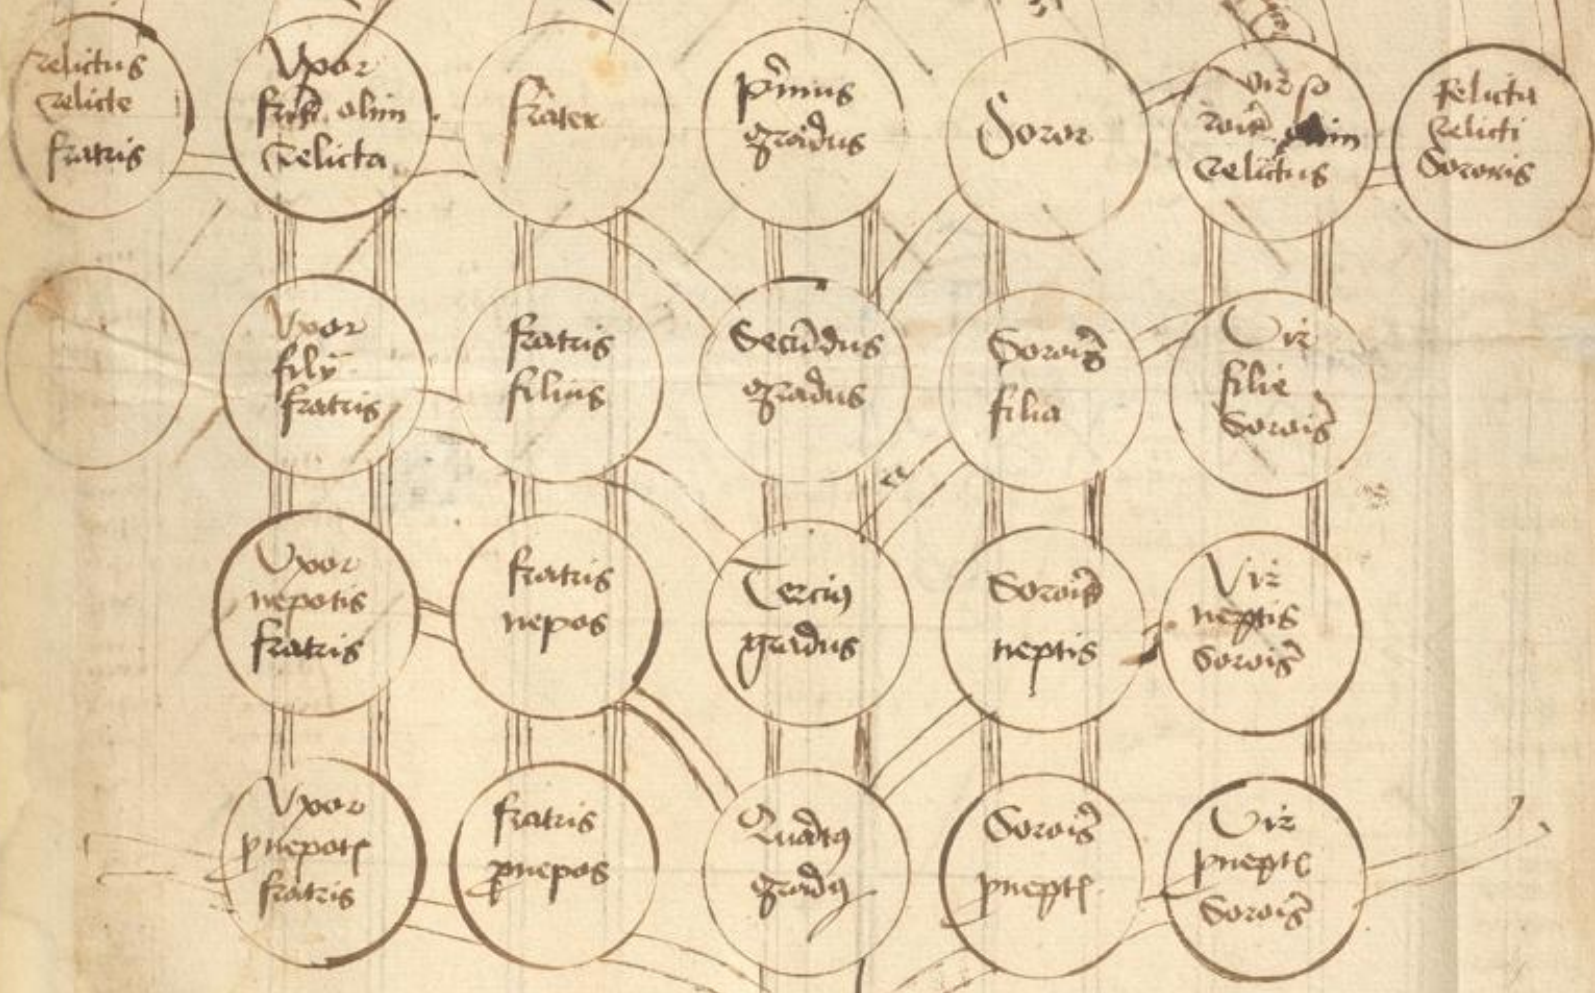 relictus
relicte
fratris
Vxor
fris olim
relicta
frater
p̄mus
gradus
Soror
vir so
roris olim
relictus
Relicta
relicti
Sororis
Vxor
filij
fratris
fratris
filius
Secūdus
gradus
Soroĩs
filia
Vir
filie
Soroĩs
Vxor
nepotis
fratris
fratris
nepos
Terciꝰ
gradus
Soroĩs
neptis
Vir
neptis
Soroĩs
Vxor
ꝓnepotꝭ
fratris
fratris
ꝓnepos
Quartꝰ
gradꝰ
Soroĩs
ꝓneptꝭ
Vir
ꝓneptꝭ
Soroĩs